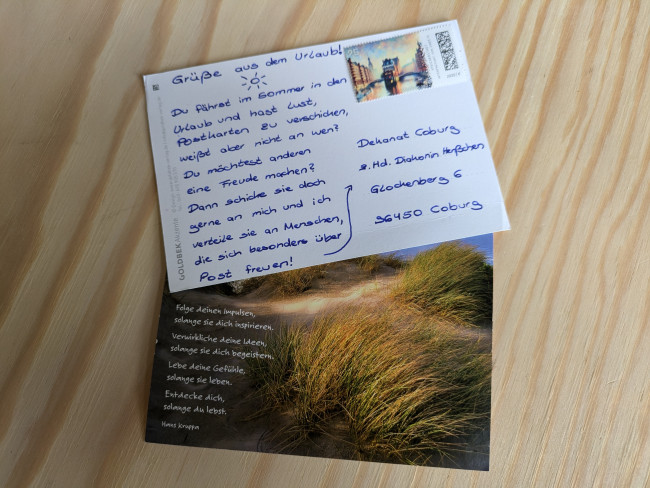 Grüße aus dem Urlaub!
Du fährst im Sommer in den
Urlaub und hast Lust,
Postkarten zu verschicken,
weißt aber nicht an wen?
Du möchtest anderen
eine Freude machen?
Dann schicke sie doch
gerne an mich und ich
verteile sie an Menschen,
die sich besonders über
Post freuen!
95
Dekanat Coburg
z. Hd. Diakonin
Glockenberg 6
96450 Coburg
GOLDBEK
Folge deinen Impulsen,
solange sie dich inspirieren.
Verwirkliche deine Ideen,
solange sie dich begeistern.
Lebe deine Gefühle,
solange sie leben.
Entdecke dich,
solange du lebst.
Hans Kruppa